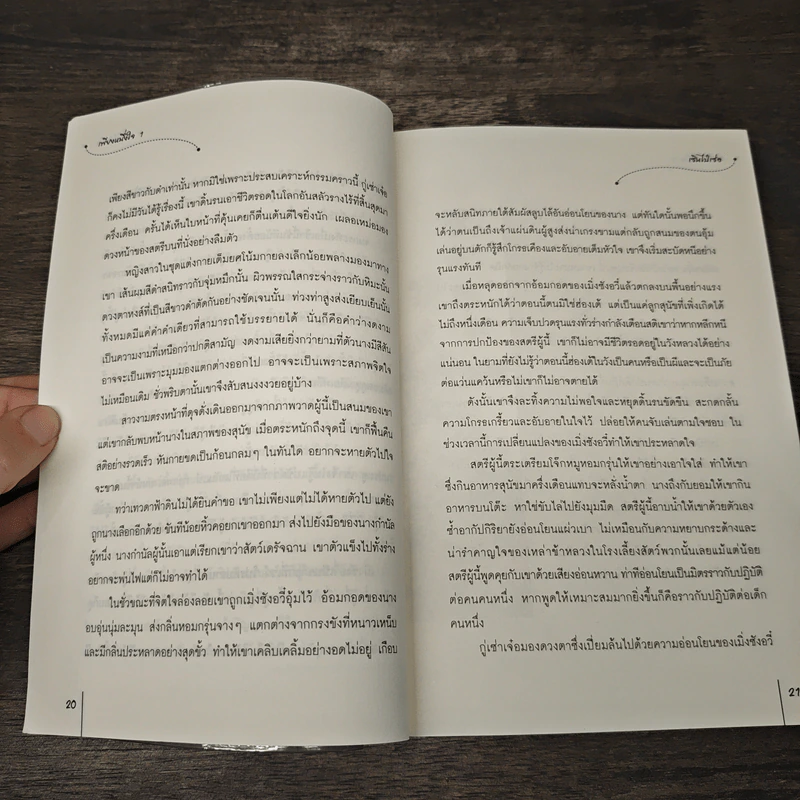 เพียงหนึ่งใจ 1
เพียงสีขาวกับดำเท่านั้น หากมิใช่เพราะประสบเคราะห์กรรมคราวนี้ กู่เซ่าเจ๋อ
ก็คงไม่มีวันได้รู้เรื่องนี้ เขาดิ้นรนเอาชีวิตรอดในโลกอันสลัวรางไร้ที่สิ้นสุดมา
ครึ่งเดือน ครั้นได้เห็นใบหน้าที่คุ้นเคยก็ตื่นเต้นดีใจยิ่งนัก เผลอเหม่อมอง
ดวงหน้าของสตรีบนที่นั่งอย่างลืมตัว
หญิงสาวในชุดแต่งกายเต็มยศโน้มกายลงเล็กน้อยพลางมองมาทาง
เขา เส้นผมสีดำสนิทราวกับจุ่มหมึกนั้น ผิวพรรณใสกระจ่างราวกับหิมะนั้น
ดวงตาหงส์ที่เป็นสีขาวดำตัดกันอย่างชัดเจนนั้น ท่วงท่าสูงส่งเยียบเย็นนั้น
ทั้งหมดมีแค่คำคำเดียวที่สามารถใช้บรรยายได้ นั่นก็คือคำว่างดงาม
เป็นความงามที่เหนือกว่าปกติสามัญ งดงามเสียยิ่งกว่ายามที่ตัวนางมีสีสัน
อาจจะเป็นเพราะมุมมองแตกต่างออกไป อาจจะเป็นเพราะสภาพจิตใจ
ไม่เหมือนเดิม ชั่วพริบตานั้นเขาจึงสับสนงงงวยอยู่บ้าง
สาวงามตรงหน้าที่ดุจดั่งเดินออกมาจากภาพวาดผู้นี้เป็นสนมของเขา
แต่เขากลับพบหน้านางในสภาพของสุนัข เมื่อตระหนักถึงจุดนี้ เขาก็ฟื้นคืน
สติอย่างรวดเร็ว หันกายขดเป็นก้อนกลมๆ ในทันใด อยากจะหายตัวไปใจ
จะขาด
ทว่าเทวดาฟ้าดินไม่ได้ยินคำขอ เขาไม่เพียงแต่ไม่ได้หายตัวไป แต่ยัง
ถูกนางเลือกอีกด้วย ขันทีน้อยหิ้วคอยกเขาออกมา ส่งไปยังมือของนางกำนัล
ผู้หนึ่ง นางกำนัลผู้นั้นเอาแต่เรียกเขาว่าสัตว์เดรัจฉาน เขาตัวแข็งไปทั้งร่าง
อยากจะพ่นไฟแต่ก็ไม่อาจทำได้
ในชั่วขณะที่จิตใจล่องลอยเขาถูกเมิ่งซังอวี๋อุ้มไว้ อ้อมกอดของนาง
อบอุ่นนุ่มละมุน ส่งกลิ่นหอมกรุ่นจางๆ แตกต่างจากกรงขังที่หนาวเหน็บ
และมีกลิ่นประหลาดอย่างสุดขั้ว ทำให้เขาเคลิบเคลิ้มอย่างอดไม่อยู่ เกือบ
20
เฟิงหลิวซูไต
จะหลับสนิทภายใต้สัมผัสลูบไล้อันอ่อนโยนของนาง แต่ทันใดนั้นพอนึกขึ้น
ได้ว่าตนเป็นถึงเจ้าแผ่นดินผู้สูงส่งน่าเกรงขามแต่กลับถูกสนมของตนอุ้ม
เล่นอยู่บนตักก็รู้สึกโกรธเคืองและอับอายเต็มหัวใจ เขาจึงเริ่มสะบัดหนีอย่าง
รุนแรงทันที
เมื่อหลุดออกจากอ้อมกอดของเมิ่งซังอวี๋แล้วตกลงบนพื้นอย่างแรง
เขาถึงตระหนักได้ว่าตอนนี้ตนมิใช่ฮ่องเต้ แต่เป็นแค่ลูกสุนัขที่เพิ่งเกิดได้
ไม่ถึงหนึ่งเดือน ความเจ็บปวดรุนแรงทั่วร่างกำลังเตือนสติเขาว่าหากหลีกหนี
จากการปกป้องของสตรีผู้นี้ เขาก็ไม่อาจมีชีวิตรอดอยู่ในวังหลวงได้อย่าง
แน่นอน ในยามที่ยังไม่รู้ว่าตอนนี้ฮ่องเต้ในวังเป็นคนหรือเป็นผีและจะเป็นภัย
ต่อแว่นแคว้นหรือไม่เขาก็ไม่อาจตายได้
ดังนั้นเขาจึงละทิ้งความไม่พอใจและหยุดดิ้นรนขัดขืน สะกดกลั้น
ความโกรธเกรี้ยวและอับอายในใจไว้ ปล่อยให้คนจับเล่นตามใจชอบ ใน
ช่วงเวลานี้การเปลี่ยนแปลงของเมิ่งซังอวี๋ทำให้เขาประหลาดใจ
สตรีผู้นี้ตระเตรียมโจ๊กหมูหอมกรุ่นให้เขาอย่างเอาใจใส่ ทำให้เขา
ซึ่งกินอาหารสุนัขมาครึ่งเดือนแทบจะหลั่งน้ำตา นางถึงกับยอมให้เขากิน
อาหารบนโต๊ะ หาใช่ขับไล่ไปยังมุมมืด สตรีผู้นี้อาบน้ำให้เขาด้วยตัวเอง
ซ้ำอากัปกิริยายังอ่อนโยนแผ่วเบา ไม่เหมือนกับความหยาบกระด้างและ
น่ารำคาญใจของเหล่าข้าหลวงในโรงเลี้ยงสัตว์พวกนั้นเลยแม้แต่น้อย
สตรีผู้นี้พูดคุยกับเขาด้วยเสียงอ่อนหวาน ท่าทีอ่อนโยนเป็นมิตรราวกับปฏิบัติ
ต่อคนคนหนึ่ง หากพูดให้เหมาะสมมากยิ่งขึ้นก็คือราวกับปฏิบัติต่อเด็ก
คนหนึ่ง
กู่เซ่าเจ๋อมองดวงตาซึ่งเปี่ยมล้นไปด้วยความอ่อนโยนของเมิ่งซังอวี๋
21